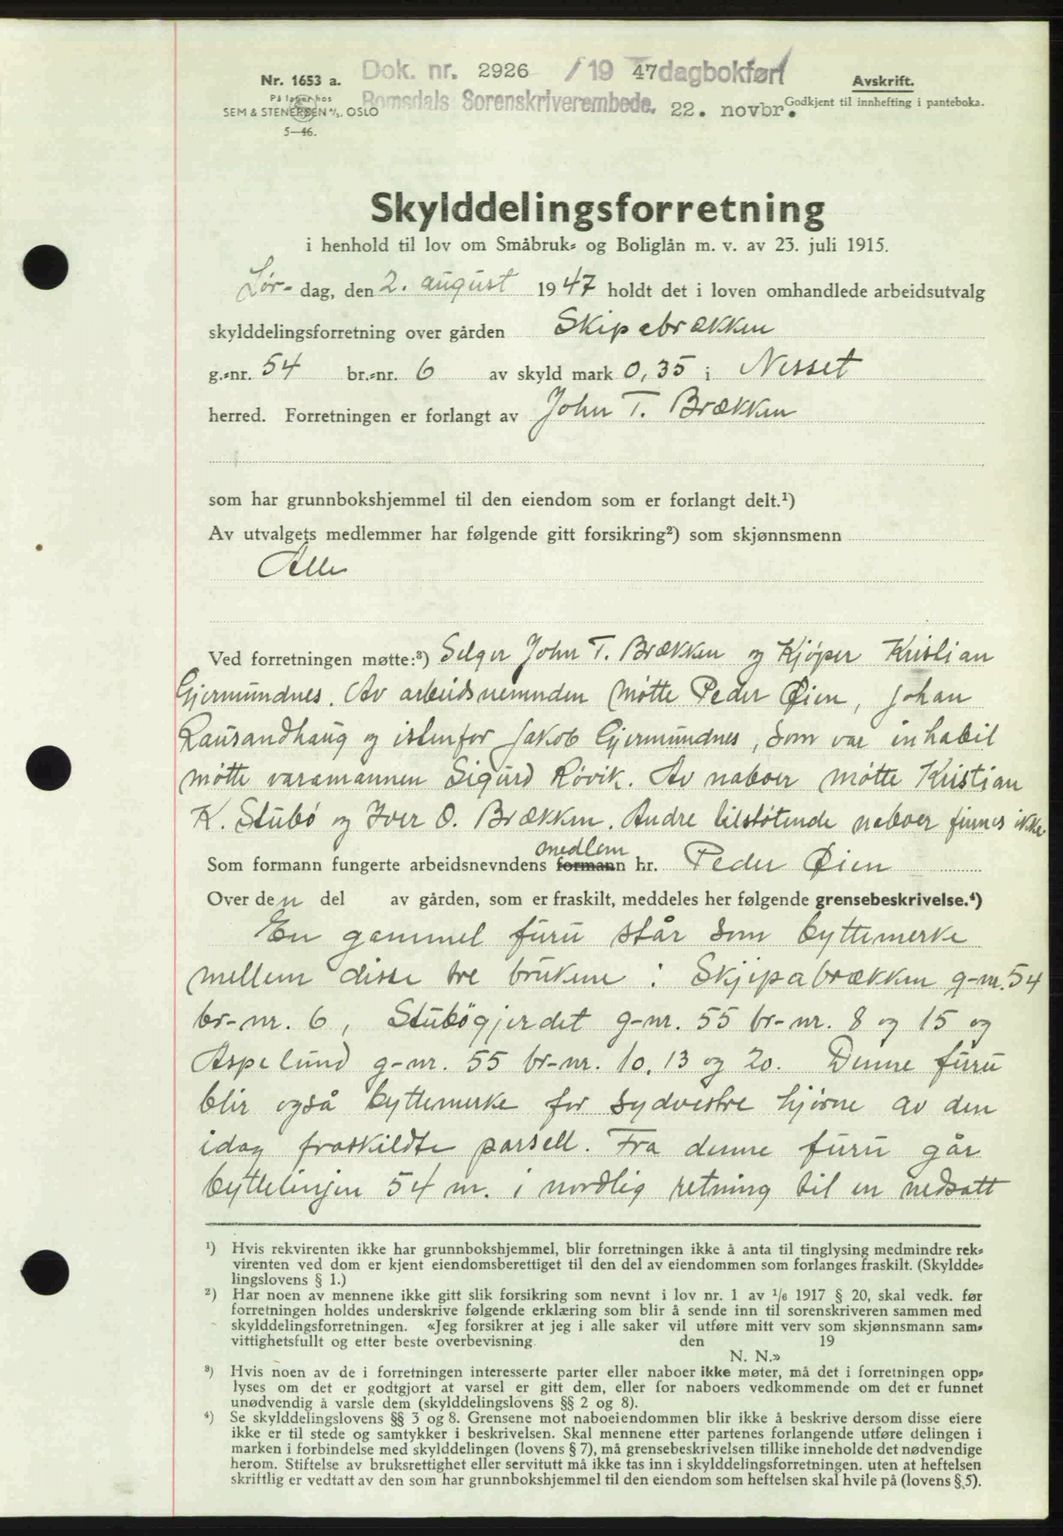 Dok. nr. 2926 / 19 47 dagbokført
Nr. 1653 a.
Avskrift.
På lager hos
Romsdals Sorenskriverembede. 22. novbr.
Godkjent til innhefting i panteboka.
SEM & STENERSEN A/S. OSLO
5—46.
Skylddelingsforretning
i henhold til lov om Småbruk- og Boliglån m. v. av 23. juli 1915.
Lør- dag, den 2. august 1947 holdt det i loven omhandlede arbeidsutvalg
skylddelingsforretning over gården Skipabrækken
g.-nr. 54 br.-nr. 6 av skyld mark 0,35 i Nesset
herred. Forretningen er forlangt av John T. Brækken
som har grunnbokshjemmel til den eiendom som er forlangt delt.¹)
Av utvalgets medlemmer har følgende gitt forsikring²) som skjønnsmenn
Alle
Ved forretningen møtte:³) Selger John T. Brækken og Kjøper Kristian
Gjermundnes. Av arbeidsnemnden møtte Peder Øien, Johan
Rausandhaug og istenfor Jakob Gjermundnes, som var inhabil
møtte varamannen Sigurd Røvik. Av naboer møtte Kristian
K. Stubø og Iver O. Brækken. Andre tilstøtende naboer finnes ikke.
medlem
Som formann fungerte arbeidsnevndens formann hr. Peder Øien
Over den del av gården, som er fraskilt, meddeles her følgende grensebeskrivelse.⁴)
En gammel furu står som byttemerke
mellem disse tre brukene : Skjipabrækken g-nr. 54
br-nr. 6, Stubøgjerdet g-nr. 55 br-nr. 8 og 15 og
Aspelund g-nr. 55 br-nr. 10, 13 og 20. Denne furu
blir også byttemerke for sydvestre hjørne av den
idag fraskildte parsell. Fra denne furu går
byttelinjen 54 m. i nordlig retning til en nedsatt
¹) Hvis rekvirenten ikke har grunnbokshjemmel, blir forretningen ikke å anta til tinglysing medmindre rek-
virenten ved dom er kjent eiendomsberettiget til den del av eiendommen som forlanges fraskilt. (Skyldde-
lingslovens § 1.)
²) Har noen av mennene ikke gitt slik forsikring som nevnt i lov nr. 1 av 1/6 1917 § 20, skal vedk. før
forretningen holdes underskrive følgende erklæring som blir å sende inn til sorenskriveren sammen med
skylddelingsforretningen. «Jeg forsikrer at jeg i alle saker vil utføre mitt verv som skjønnsmann sam-
vittighetsfullt og etter beste overbevisning den 19
N. N.»
³) Hvis noen av de i forretningen interesserte parter eller naboer ikke møter, må det i forretningen opp-
lyses om det er godtgjort at varsel er gitt dem, eller for naboers vedkommende om det er funnet
unødvendig å varsle dem (skylddelingslovens §§ 2 og 8).
⁴) Se skylddelingslovens §§ 3 og 8. Grensene mot naboeiendommen blir ikke å beskrive dersom disse eiere
ikke er til stede og samtykker i beskrivelsen. Skal mennene etter partenes forlangende utføre delingen i
marken i forbindelse med skylddelingen (lovens § 7), må grensebeskrivelsen tillike inneholde det nødvendige
herom. Stiftelse av bruksrettighet eller servitutt må ikke tas inn i skylddelingsforretningen. uten at heftelsen
skriftlig er vedtatt av den som har grunnbokshjemmel til den eiendom som heftelsen skal hvile på (lovens § 5).